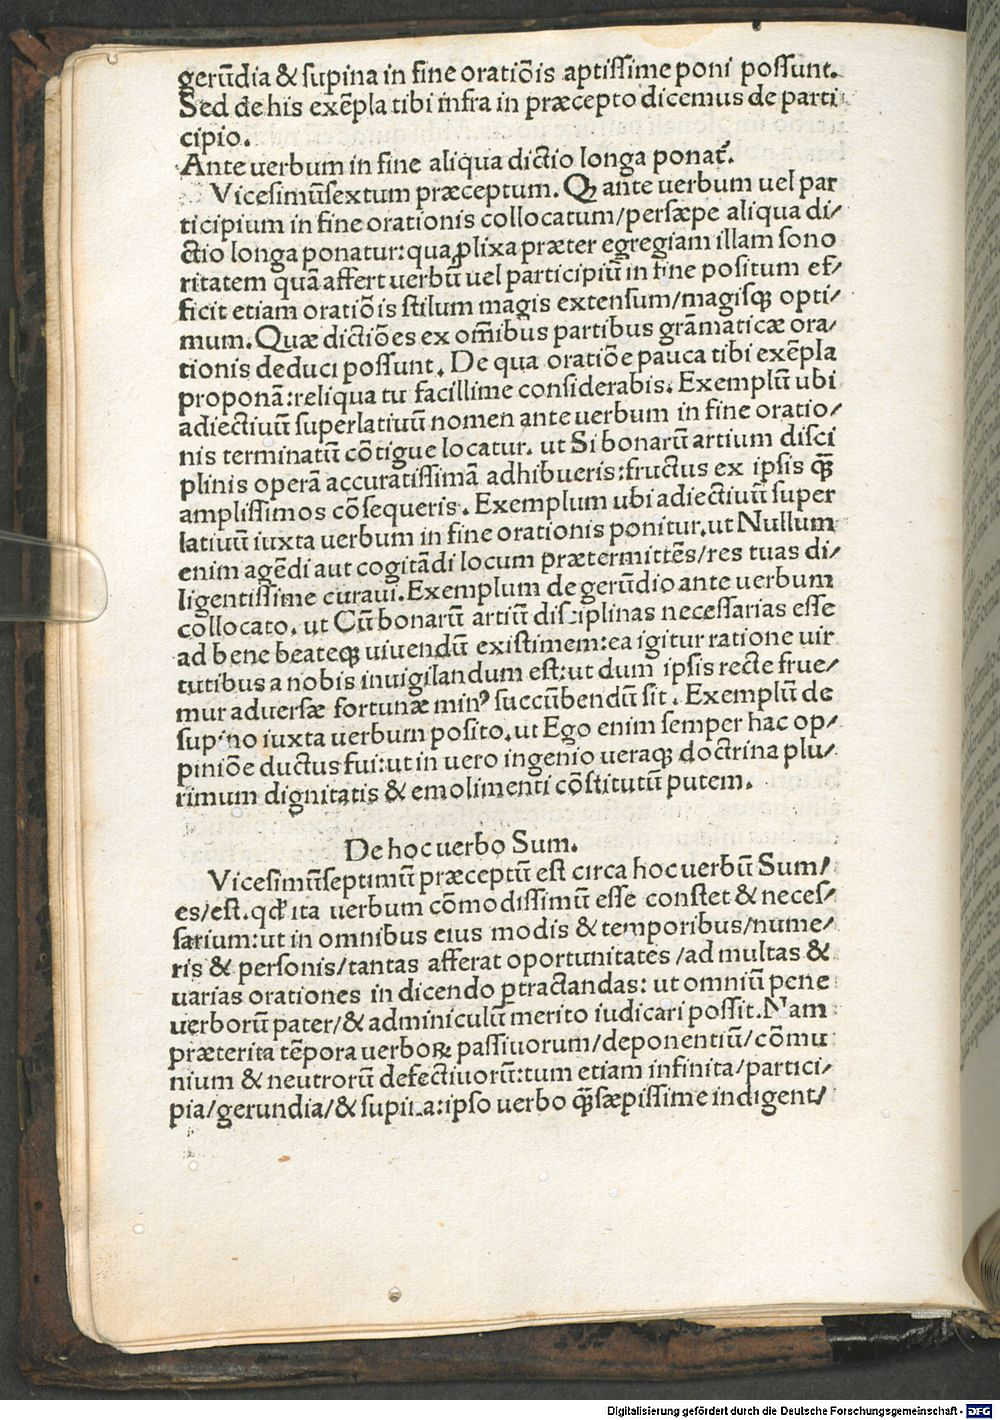 gerūdia & ſupina in fine oratiōis aptiſſime poni poſſunt.
Sed de his exēpla tibi infra in præcepto dicemus de parti
cipio.
Ante uerbum in fine aliqua dictio longa ponat᷑.
Viceſimūſextum præceptum. Qꝫ ante uerbum uel par
ticipium in fine orationis collocatum/perſæpe aliqua di/
ctio longa ponatur:qua ꝓlixa præter egregiam illam ſono
ritatem quā affert uerbū uel participiū in fine poſitum ef/
ficit etiam oratiōis ſtilum magis extenſum/magiſqꝫ opti/
mum. Quæ dictiōes ex om̄ibus partibus grāmaticæ ora/
tionis deduci poſſunt. De qua oratiōe pauca tibi exēpla
proponā:reliqua tu facillime conſiderabis. Exemplū ubi
adiectiuū ſuperlatiuū nomen ante uerbum in fine oratio/
nis terminatū cōtigue locatur. ut Si bonarū artium diſci
plinis operā accuratiſſimā adhibueris:fructus ex ipſis qꝫ̄
ampliſſimos cōſequeris. Exemplum ubi adiectiuū ſuper
latiuū iuxta uerbum in fine orationis ponitur.ut Nullum
enim agēdi aut cogitādi locum prætermittēs/res tuas di/
ligentiſſime curaui.Exemplum de gerūdio ante uerbum
collocato. ut Cū bonarū artiū diſciplinas neceſſarias eſſe
ad bene beateqꝫ uiuendū exiſtimem:ea igitur ratione uir
tutibus a nobis inuigilandum eſt:ut dum ipſis recte frue/
mur aduerſæ fortunæ minꝰ ſuccūbendū ſit. Exemplū de
ſupino iuxta uerbum poſito.ut Ego enim ſemper hac op/
piniōe ductus fui:ut in uero ingenio ueraqꝫ doctrina plu/
rimum dignitatis & emolimenti cōſtitutū putem.
De hoc uerbo Sum.
Viceſimūſeptimū præceptū eſt circa hoc uerbū Sum/
es/eſt.qđ ita uerbum cōmodiſſimū eſſe conſtet & neceſ/
ſarium:ut in omnibus eius modis & temporibus/nume/
ris & perſonis/tantas afferat oportunitates/ad multas &
uarias orationes in dicendo ꝑtractandas: ut omniū pene
uerborū pater/& adminiculū merito iudicari poſſit.Nam
præterita tēpora uerboꝝ paſſiuorum/deponentiū/cōmu
nium & neutrorū defectiuorū:tum etiam infinita/partici/
pia/gerundia/& ſupina:ipſo uerbo qꝫ̄ſæpiſſime indigent/
Digitalisierung gefördert durch die Deutsche Forschungsgemeinschaft - DFG